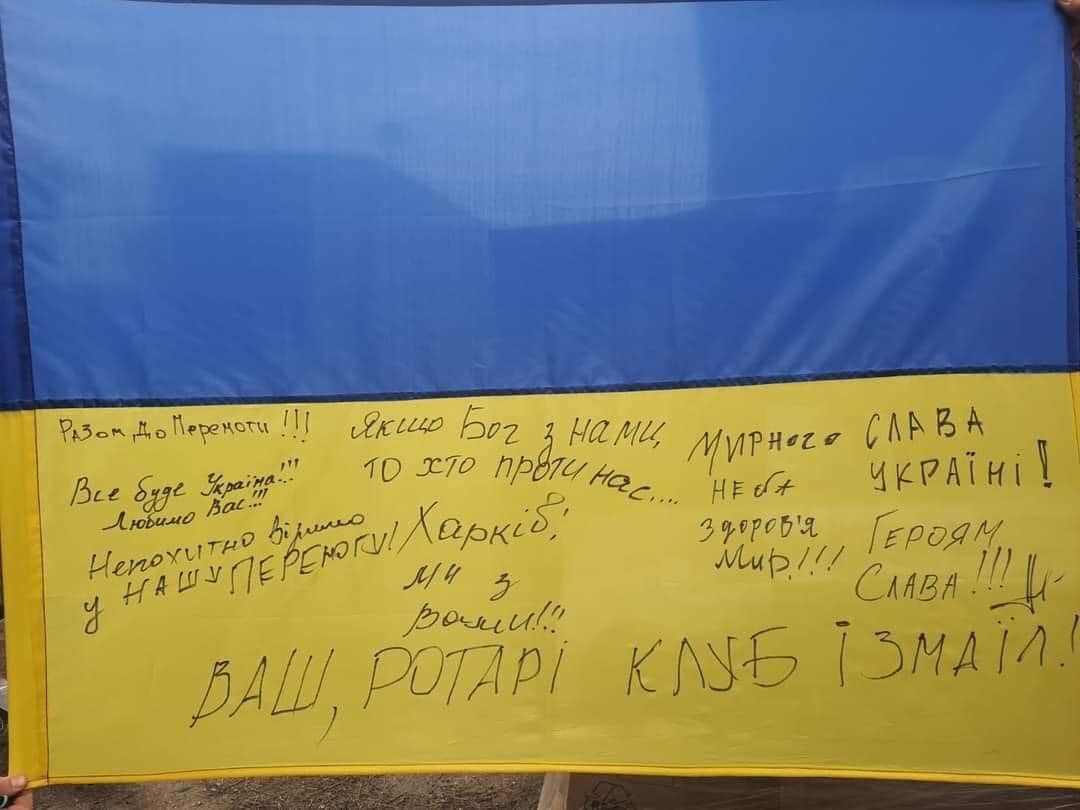 Разом до Перемоги !!!
Все буде Україна!!!
Любимо Вас!!!
Непохитно віримо
у НАШУ ПЕРЕМОГУ!
Якщо Бог з нами,
то хто проти нас....
Харків!
Ми з
Вами!!!
Мирного
неба
здоров'я
Мир!!!
СЛАВА
УКРАЇНІ!
ГЕРОЯМ
СЛАВА!!!
ВАШ, РОТАРІ КЛУБ ІЗМАЇЛ!